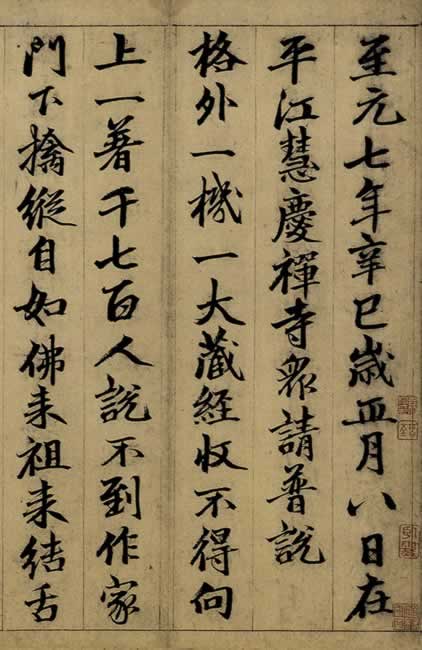 至元七年辛巳歲正月八日在
平江慧慶禪寺眾請普說
格外一機一大藏經收不得向
上一著千七百人說不到作家
門下擒縱自如佛来祖来結舌